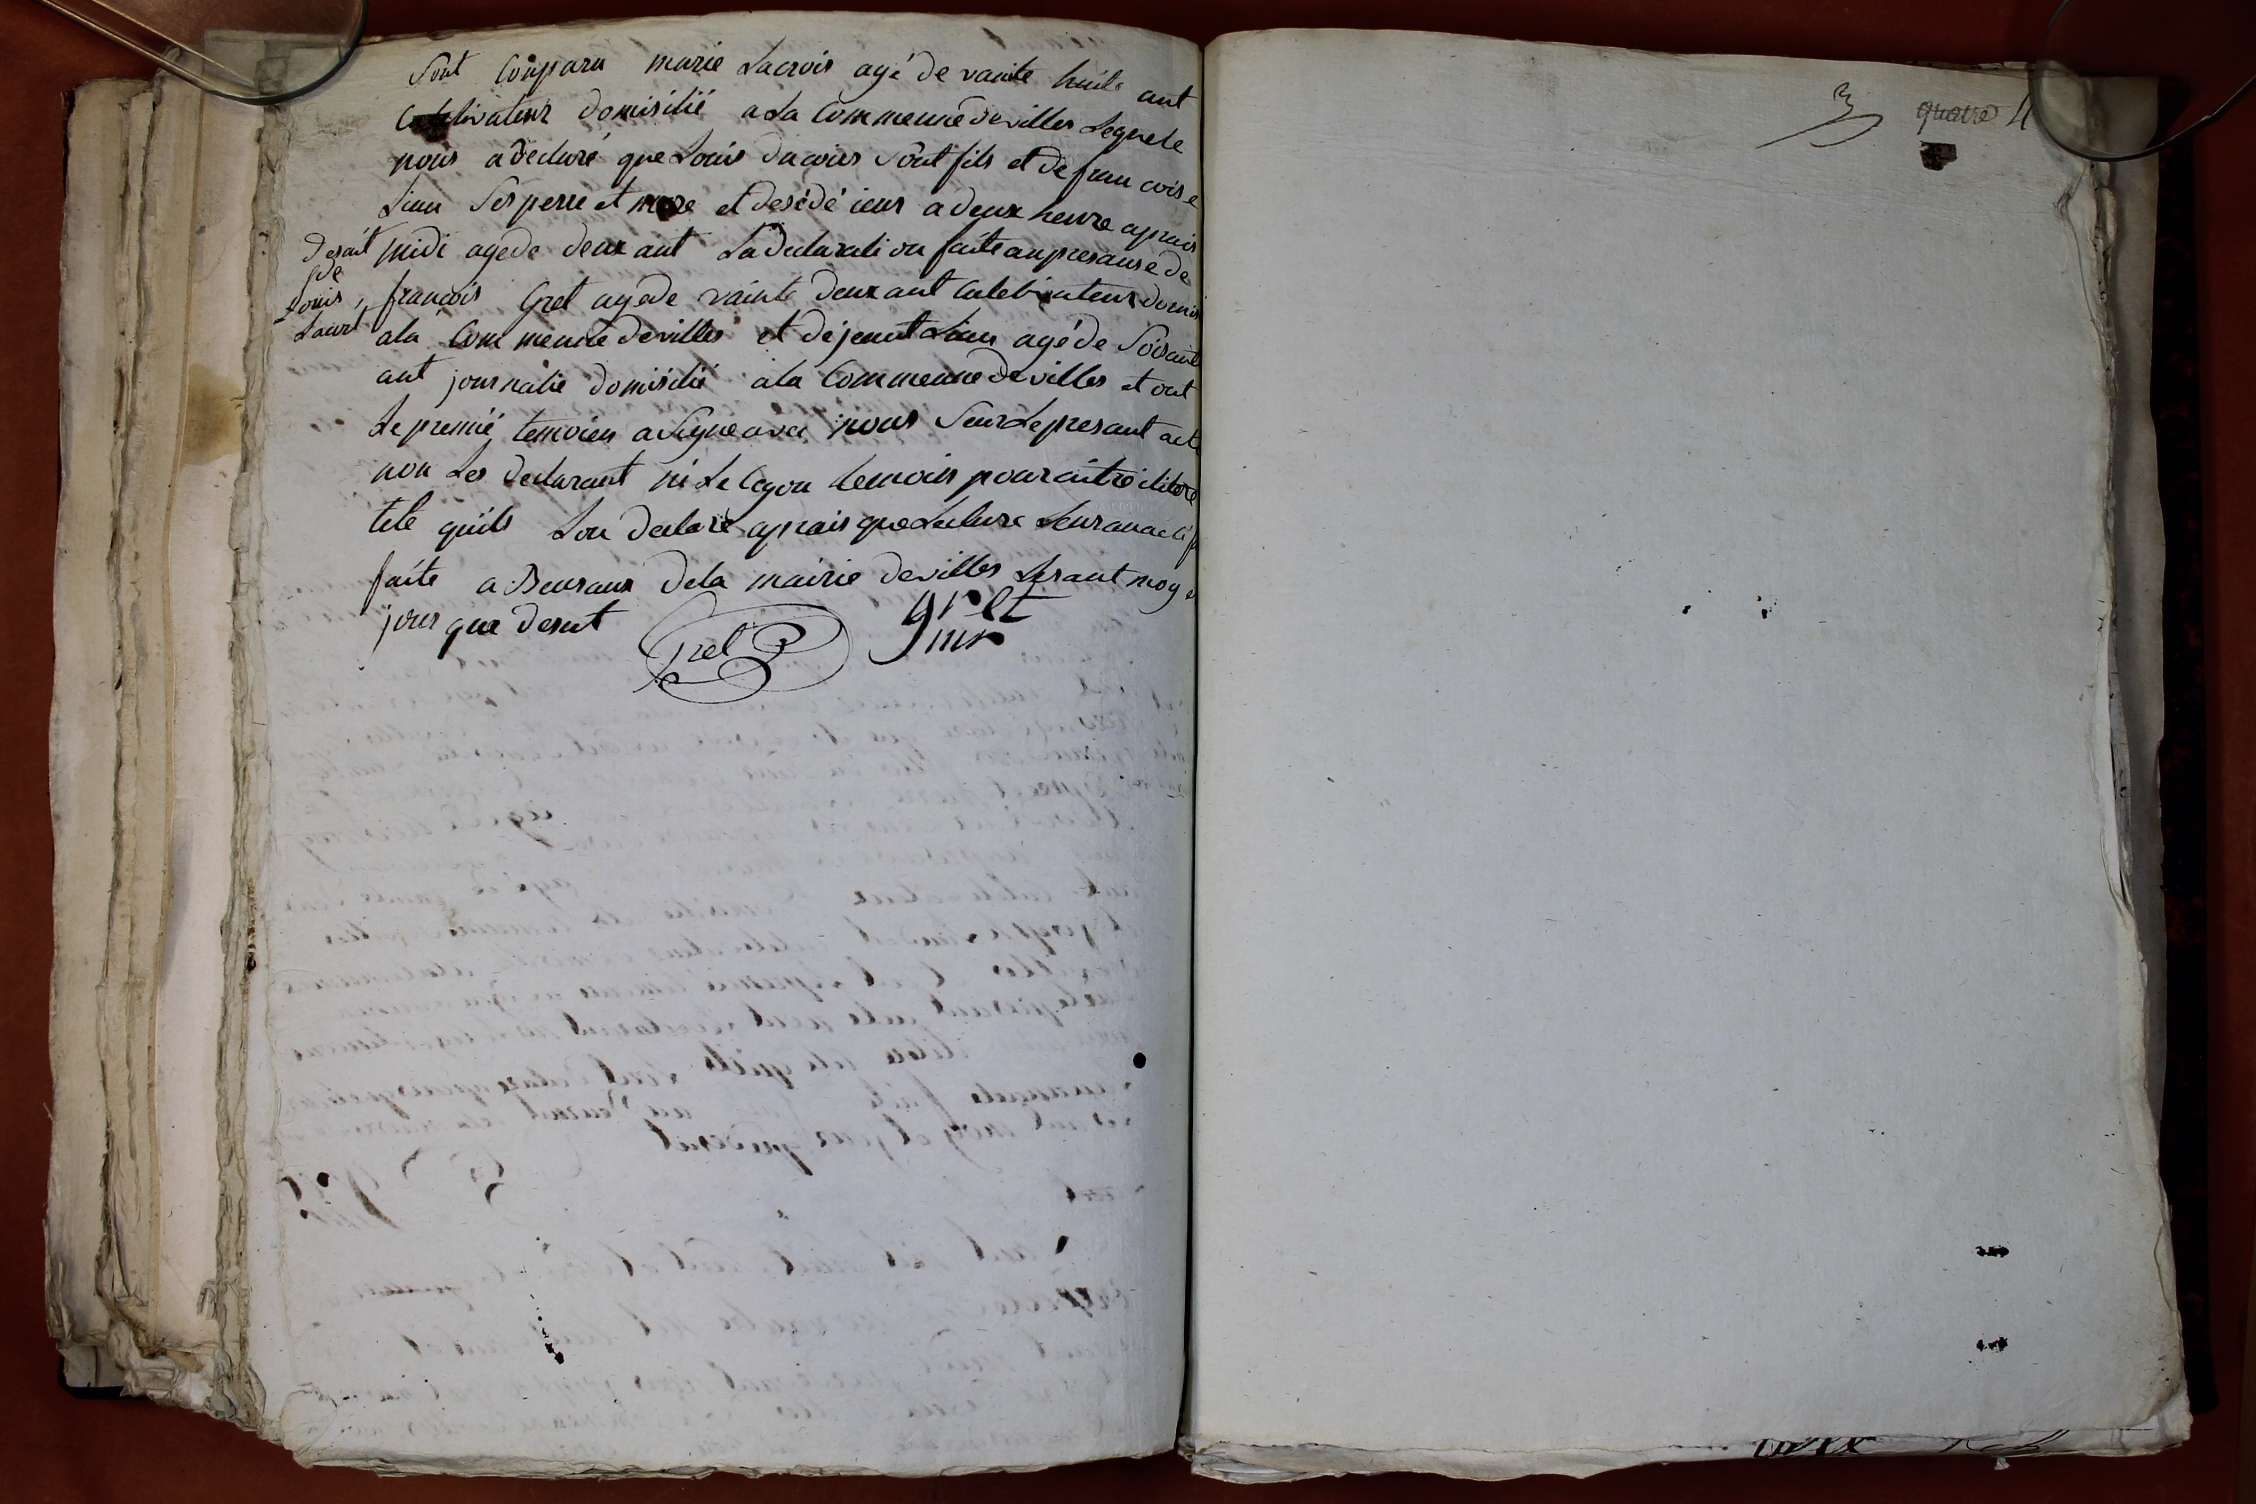 Sont Comparu marie Lacrois agé de vainte huite ant
Cultivateur domisilié a La Commeune de villes Lequele
nous a declaré que Louis Lacrois Sont fils et de francoise
Liau Ses perre et mere et desédé ieur a deux heure aprais
midi agé de deux ant La declarati on faite anpresanse de
desait
de
Louis
Lacroi
francois Gret agé de vainte deux ant Culetivateur domisi
ala Commeune de villes et déjeant Liau agé de Soisante
ant journalié domisilié a la Commeune de villes et ont
Le premié temoien a Signe avec nous Seur Le presant acte
non Les declarant ni Le Cegon temoin pour aitre ilitere
tele quils Lon declaré aprais que Lecture Leur an a été
faite a Beuraux de la mairie de villes Les ant moy e
jour que desut
Gret
gret
mr
3
quatre 4